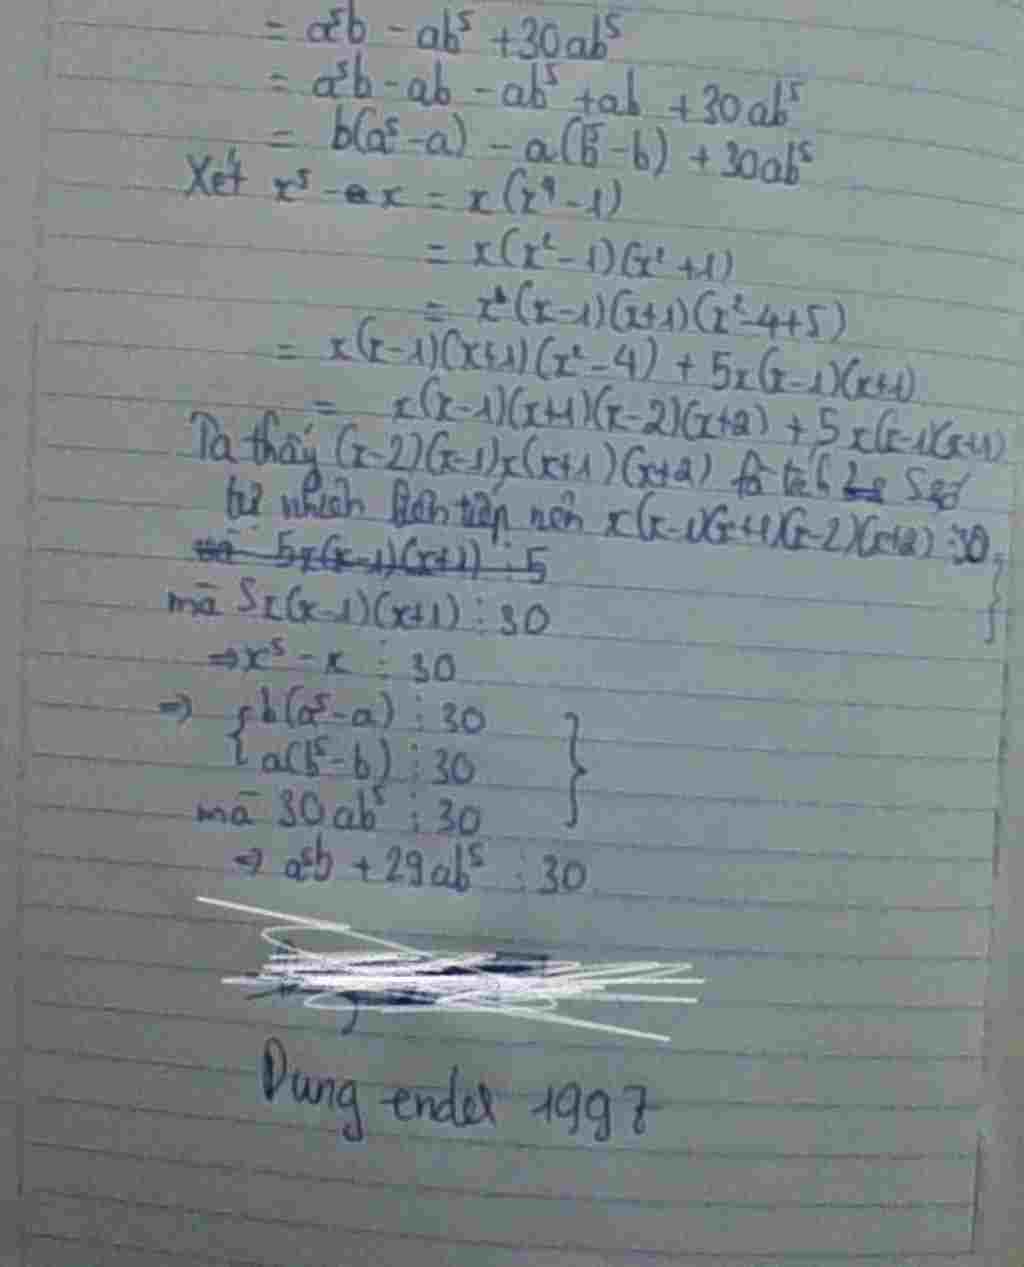 = a⁵b - ab⁵ + 30ab⁵
= a⁵b - ab - ab⁵ + ab + 30ab⁵
= b(a⁵ - a) - a(b⁵ - b) + 30ab⁵
Xét x⁵ - x = x(x⁴ - 1)
= x(x² - 1)(x² + 1)
= x(x - 1)(x + 1)(x² - 4 + 5)
= x(x - 1)(x + 1)(x² - 4) + 5x(x - 1)(x + 1)
= x(x - 1)(x + 1)(x - 2)(x + 2) + 5x(x - 1)(x + 1)
Ta thấy (x - 2)(x - 1)x(x + 1)(x + 2) là tích 5 số
tự nhiên liên tiếp nên x(x - 1)(x + 1)(x - 2)(x + 2) ⋮ 30
5x(x - 1)(x + 1) ⋮ 5
mà 5x(x - 1)(x + 1) ⋮ 30
⇒ x⁵ - x ⋮ 30
⇒ { b(a⁵ - a) ⋮ 30
a(b⁵ - b) ⋮ 30
mà 30ab⁵ ⋮ 30
⇒ a⁵b + 29ab⁵ ⋮ 30
Dung endel 1997